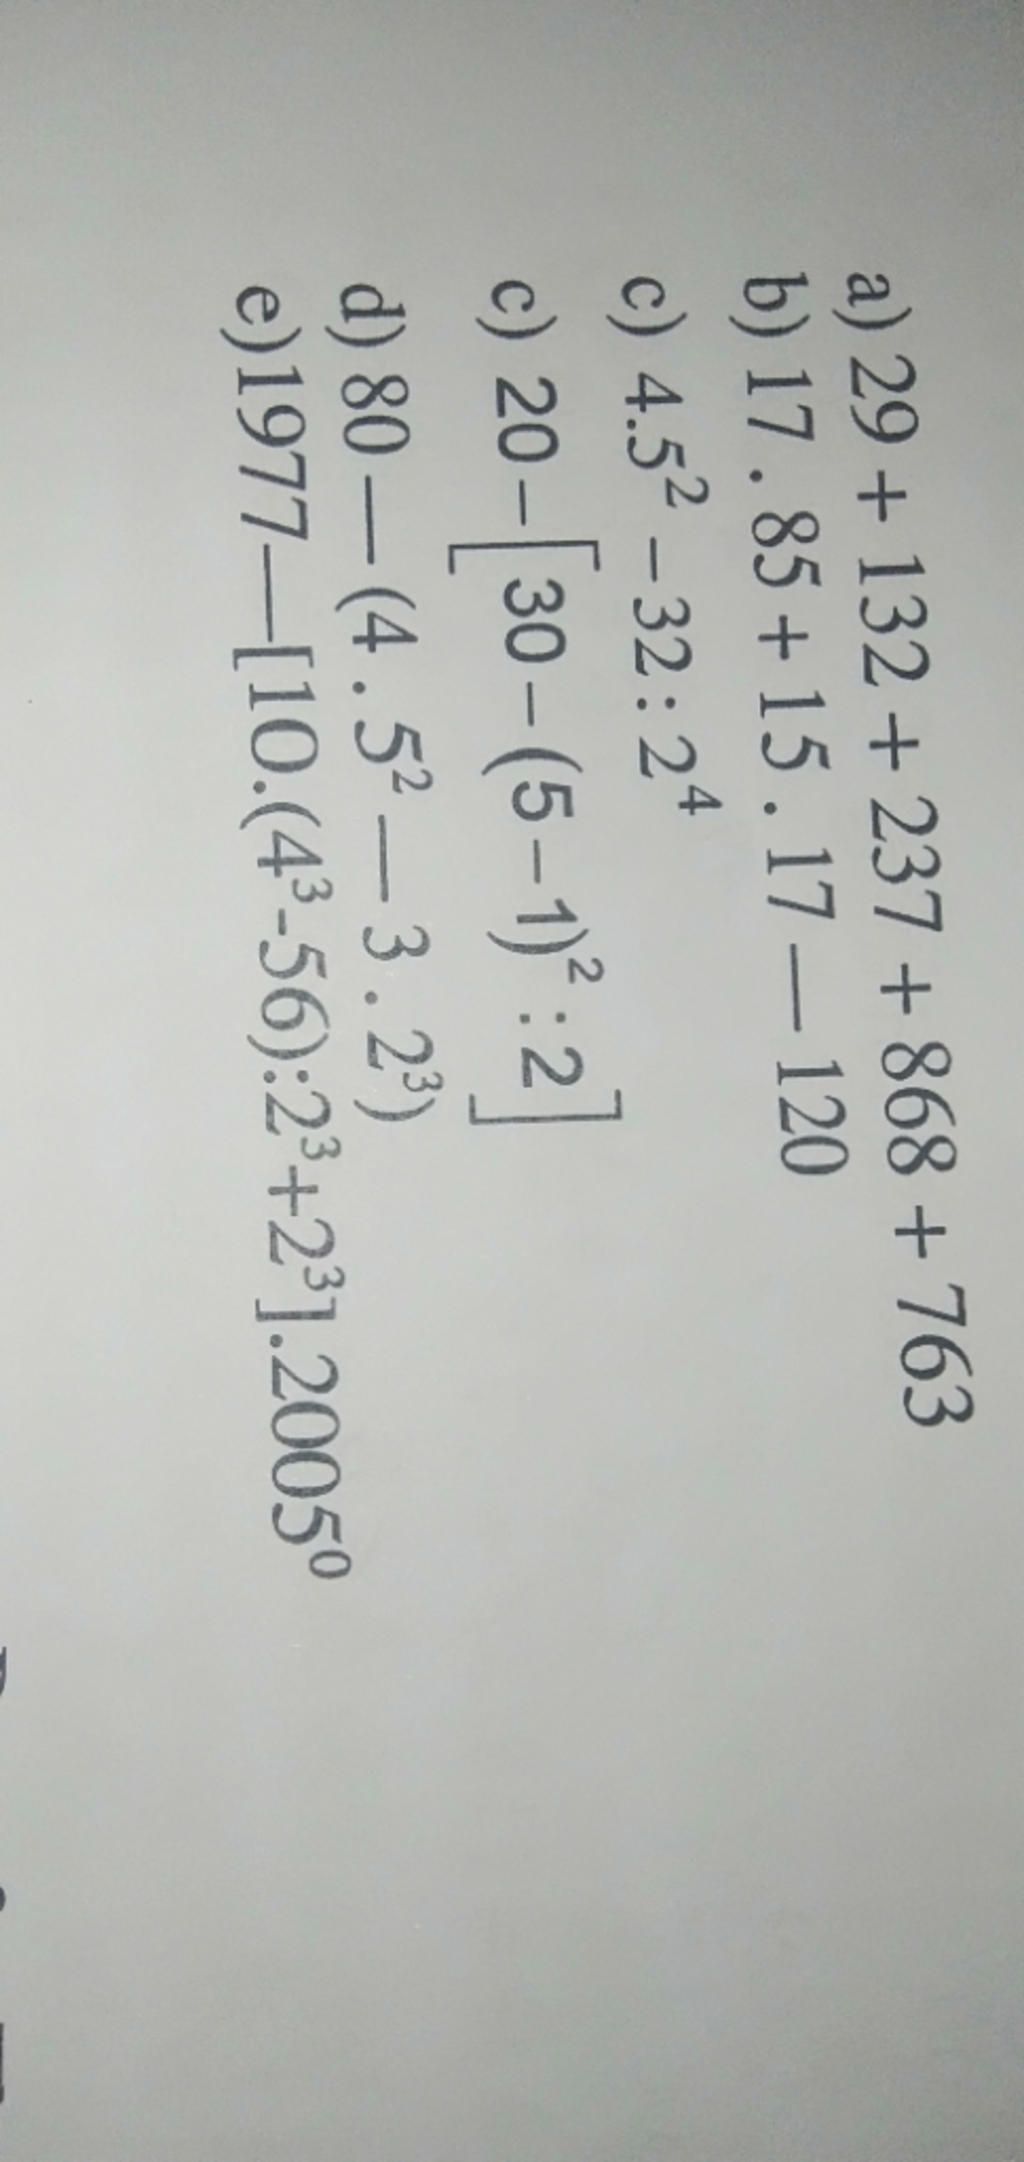 a) 29 + 132 + 237 + 868 + 763
b) 17 . 85 + 15 . 17 — 120
c) 4.5² – 32 : 2⁴
c) 20 – [30 – (5 – 1)² : 2]
d) 80 — (4 . 5² — 3 . 2³)
e)1977—[10.(4³-56):2³+2³].2005⁰